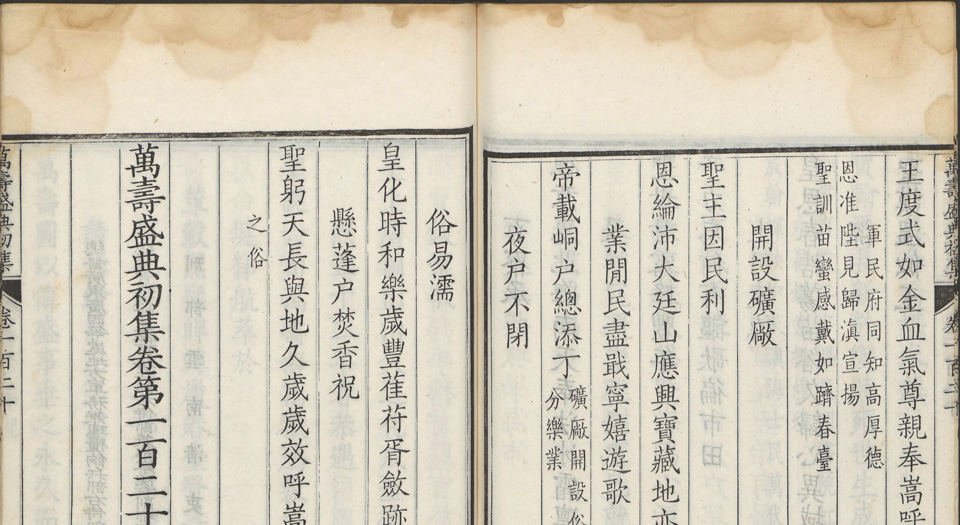 萬壽盛典初集
卷一百二十
王度式如金血氣尊親奉嵩呼
軍民府同知高厚德
恩准陛見歸滇宣揚
聖訓苗蠻感戴如躋春臺
開設礦廠
聖主因民利
恩綸沛大廷山應興寶藏地亦
業閒民盡戢寧嬉遊歌
帝載峒户總添丁
礦廠開設俗
分樂業
夜户不閉
俗易濡
皇化時和樂歲豐萑苻胥斂跡
懸蓬户焚香祝
聖躬天長與地久歲歲效呼嵩
之俗
萬壽盛典初集卷第一百二十
萬壽盛典初集
卷一百二十